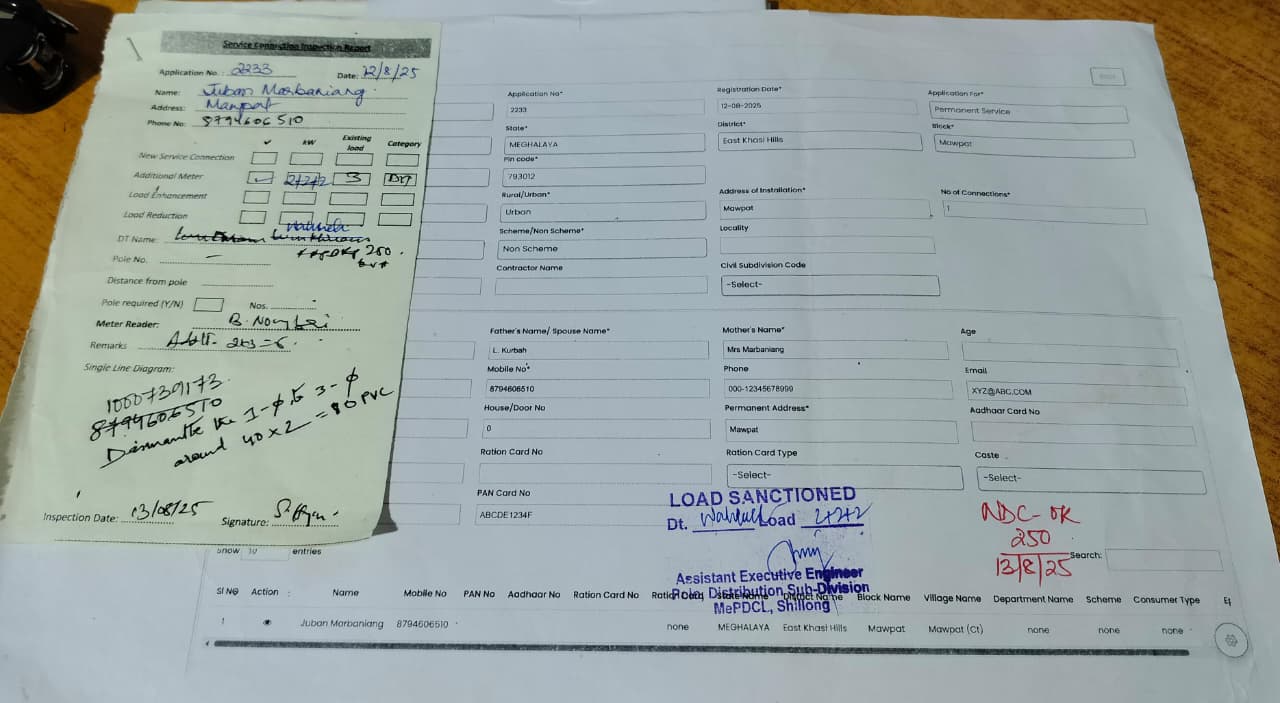 Service Connection Inspection Report
Application No.: 2233 Date: 12/8/25
Name: Juban Marbaniang
Address: Mawpat
Phone No: 8794606510
✓ kW Existing load Category
New Service Connection
Additional Meter ✓ 2/2/2 3 DLT
Load Enhancement
Load Reduction
DT Name:
250
Pole No. -
Distance from pole
Pole required (Y/N) Nos.
Meter Reader: B.
Remarks 2x3=6
Single Line Diagram:
1000739173
8794606510
Dismantle the 1-φ to 3-φ
around 40x2=80 PVC
Inspection Date: 13/08/25 Signature:
Application No* Registration Date* Application For*
2233 12-08-2025 Permanent Service
State* District* Block*
MEGHALAYA East Khasi Hills Mawpat
Pin code*
793012
Rural/Urban* Address of Installation* No of Connections*
Urban Mawpat 1
Scheme/Non Scheme* Locality
Non Scheme
Contractor Name Civil Subdivision Code
-Select-
Father's Name/ Spouse Name* Mother's Name* Age
L. Kurbah Mrs Marbaniang
Mobile No* Phone Email
8794606510 000-12345678999 XYZ@ABC.COM
House/Door No Permanent Address* Aadhaar Card No
0 Mawpat
Ration Card No Ration Card Type Caste
-Select- -Select-
PAN Card No
ABCDE1234F
LOAD SANCTIONED
Dt. Load 2+2+2
Assistant Executive Engineer
Distribution Sub-Division
MePDCL, Shillong
NDC-OK
250
13/8/25
Show 10 entries Search:
Sl No Action Name Mobile No PAN No Aadhaar No Ration Card No State Name District Name Block Name Village Name Department Name Scheme Consumer Type
1 Juban Marbaniang 8794606510 none MEGHALAYA East Khasi Hills Mawpat Mawpat (Ct) none none none